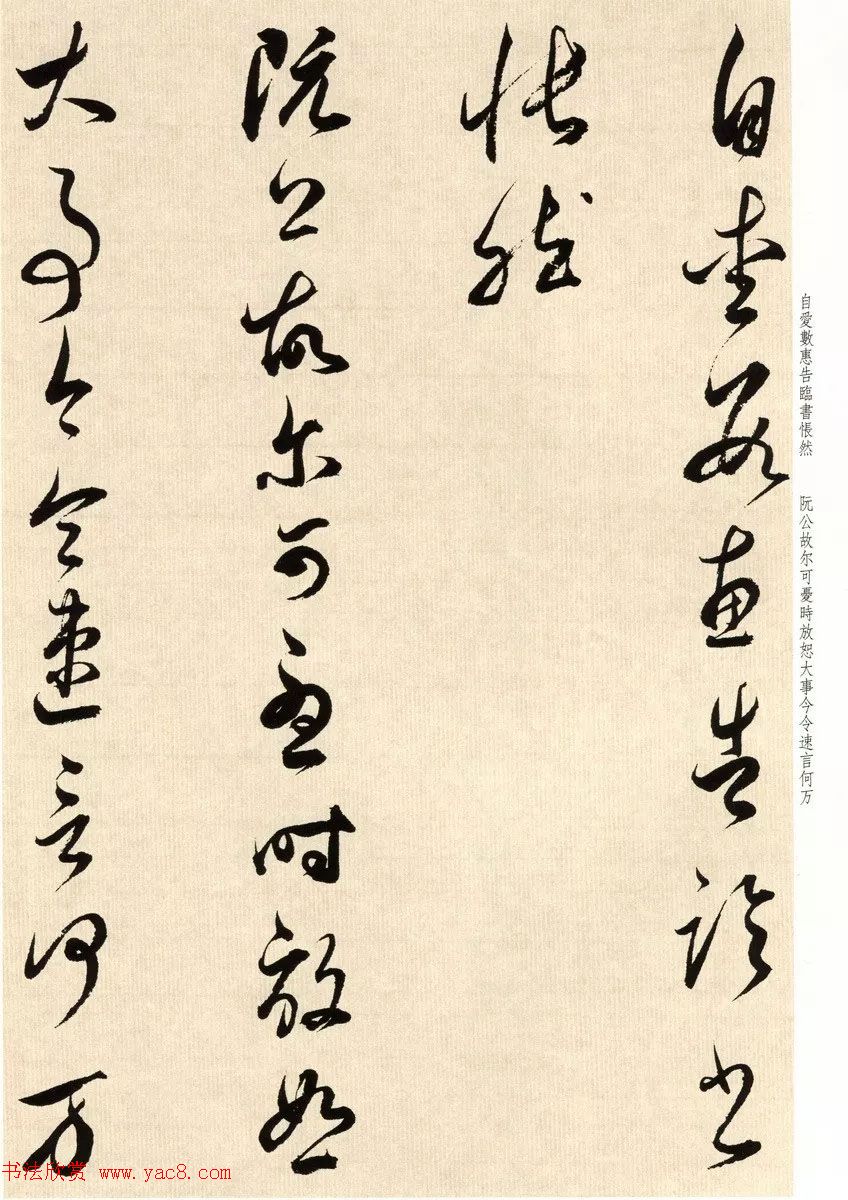 自愛數惠告臨書
悵然
阮公故尔可憂時放恕
大事今令速言何万
自愛數惠告臨書悵然　阮公故尔可憂時放恕大事今令速言何万
书法欣赏 www.yac8.com